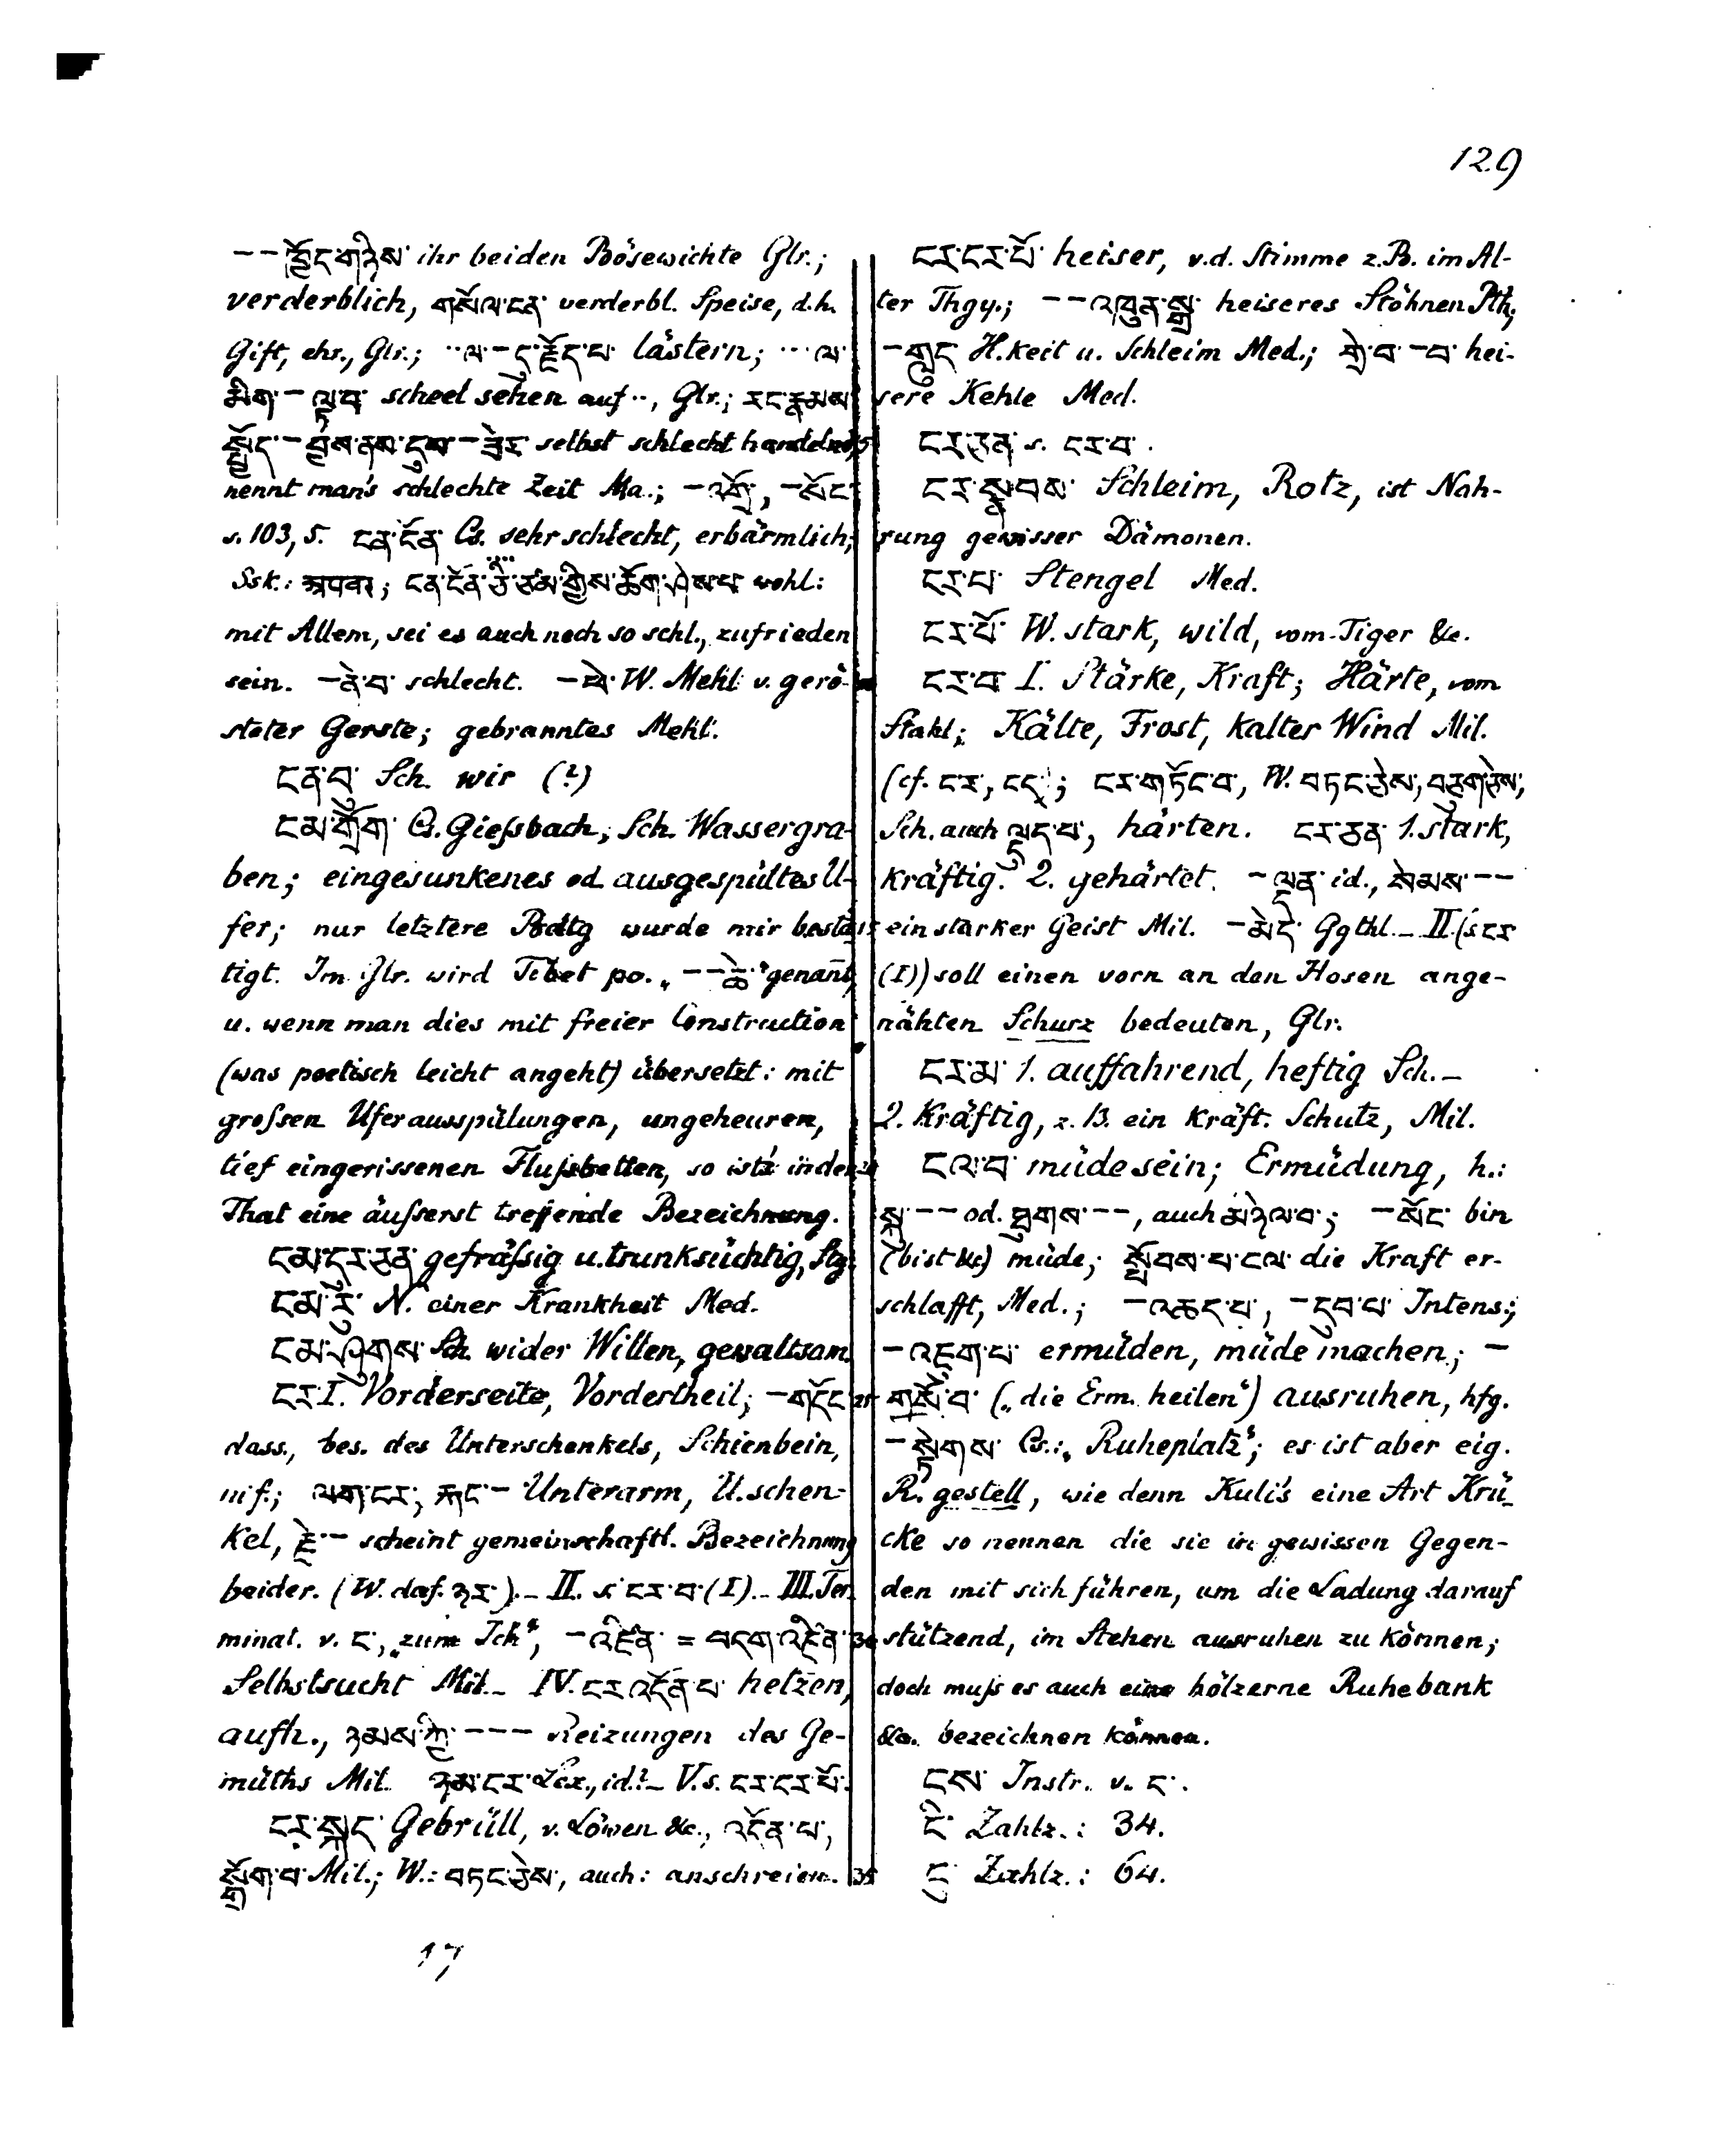 129
–– ཁྱོད་གཉིས་ ihr beiden Bösewichte Glr.;
verderblich, གསོལ་ངན་ verderbl. Speise, d.h.
Gift, ehr., Glr.; ··ལ་–དུ་རྗོད་པ་ lästern; ···ལ་
མིག་–ལྟ་བ་ scheel sehen auf··, Glr.; རང་རྣམས་
སྤྱོད་–བྱས་ནས་དུས་–ཟེར་ selbst schlecht handelnd, 5
nennt man's schlechte Zeit Ma.; –འགྲོ, –སོང་
s. 103, 5. ངན་ངོན་ Cs. sehr schlecht, erbärmlich;
Ssk.: ངན་ངོན་ཙི་ཙམ་གྱིས་ཆོག་ཤེས་པ་ wohl:
mit Allem, sei es auch noch so schl., zufrieden
sein. –ནེ་བ་ schlecht. –ཕེ་ W. Mehl v. gerö-
steter Gerste; gebranntes Mehl.
ངན་བུ་ Sch. wir (?)
ངམ་གྲོག་ Cs. Gießbach, Sch. Wassergra-
ben; eingesunkenes od. ausgespültes U-
fer; nur letztere Bdtg wurde mir bestä- 15
tigt. Im Glr. wird Tibet po. „––ཆེ་“ genañt,
u. wenn man dies mit freier Construction
(was poetisch leicht angeht) übersetzt: mit
großen Uferausspülungen, ungeheuren,
tief eingerissenen Flußbetten, so ist's in der 20
That eine äußerst treffende Bezeichnung.
ངམ་ངར་ཅན་ gefräßig u. trunksüchtig, Stg.
ངམ་རུ་ N. einer Krankheit Med.
ངམ་ཤུགས་ Sch. wider Willen, gewaltsam.
ངར་ I. Vorderseite, Vordertheil; –གདོང་ 25
dass., bes. des Unterschenkels, Schienbein,
ni f.; ལག་ངར་, རྐང་– Unterarm, U.schen-
kel, རྗེ་– scheint gemeinschaftl. Bezeichnung
beider. (W. daf. ཉར་).– II. s. ངར་བ་ (I).– III. Ter-
minat. v. ང་, „zum Ich“, –འཛིན་ = བདག་འཛིན་ 30
Selbstsucht Mil.– IV. ངར་འདོན་པ་ hetzen,
aufh., ཉམས་ཀྱི་––– Reizungen des Ge-
müths Mil. ཉམ་ངར་ Lex., id.?– V. s. ངར་ངར་པོ་.
ངར་སྐད་ Gebrüll, v. Löwen &c., འདོན་པ་,
སྒྲོག་པ་ Mil.; W.: བཏང་ཅེས་, auch: anschreien. 35
17
ངར་ངར་པོ་ heiser, v.d. Stimme z.B. im Al-
ter Thgy.; ––འཁུན་སྒྲ་ heiseres Stöhnen Pth.;
–གླུད H.keit u. Schleim Med.; གྲེ་བ་–བ་ hei-
sere Kehle Med.
ངར་ཅན་ s. ངར་བ་.
ངར་སྣབས་ Schleim, Rotz, ist Nah-
rung gewisser Dämonen.
ངར་པ་ Stengel Med.
ངར་པོ་ W. stark, wild, vom Tiger &c.
ངར་བ་ I. Stärke, Kraft; Härte, vom
Stahl; Kälte, Frost, kalter Wind Mil.
(cf. ངར་, ངད་; ངར་གཏོང་བ་, W. བཏང་ཅེས་, བརྒྱག་ཅེས་,
Sch. auch ལྡུད་པ་, härten. ངར་ཅན་ 1. stark,
kräftig. 2. gehärtet. –ལྡན་ id., སེམས་––
ein starker Geist Mil. –མེད་ Ggthl.– II. (s. ངར
(I)) soll einen vorn an den Hosen ange-
nähten Schurz bedeuten, Glr.
ངར་མ་ 1. auffahrend, heftig Sch.–
2. kräftig, z.B. ein kräft. Schutz, Mil.
ངལ་བ་ müde sein; Ermüdung, h.:
སྐུ་––od. ཐུགས་––, auch མཉེལ་བ་; –སོང་ bin
(bist &c) müde; སྟོབས་པ་ངལ་ die Kraft er-
schlafft, Med.; –འཆད་པ་, –དུབ་པ་ Intens.;
–འཇུག་པ་ ermüden, müde machen; –
གསོ་བ་ („die Erm. heilen“) ausruhen, hfg.
–སྟེགས་ Cs.: „Ruheplatz“; es ist aber eig.
R. gestell, wie denn Kuli's eine Art Krü-
cke so nennen die sie in gewissen Gegen-
den mit sich führen, um die Ladung darauf
stützend, im Stehen ausruhen zu können;
doch muß es auch eine hölzerne Ruhebank
&c. bezeichnen können.
ངས་ Instr. v. ང་.
ངི་ Zahlz.: 34.
ངུ་ Zahlz.: 64.